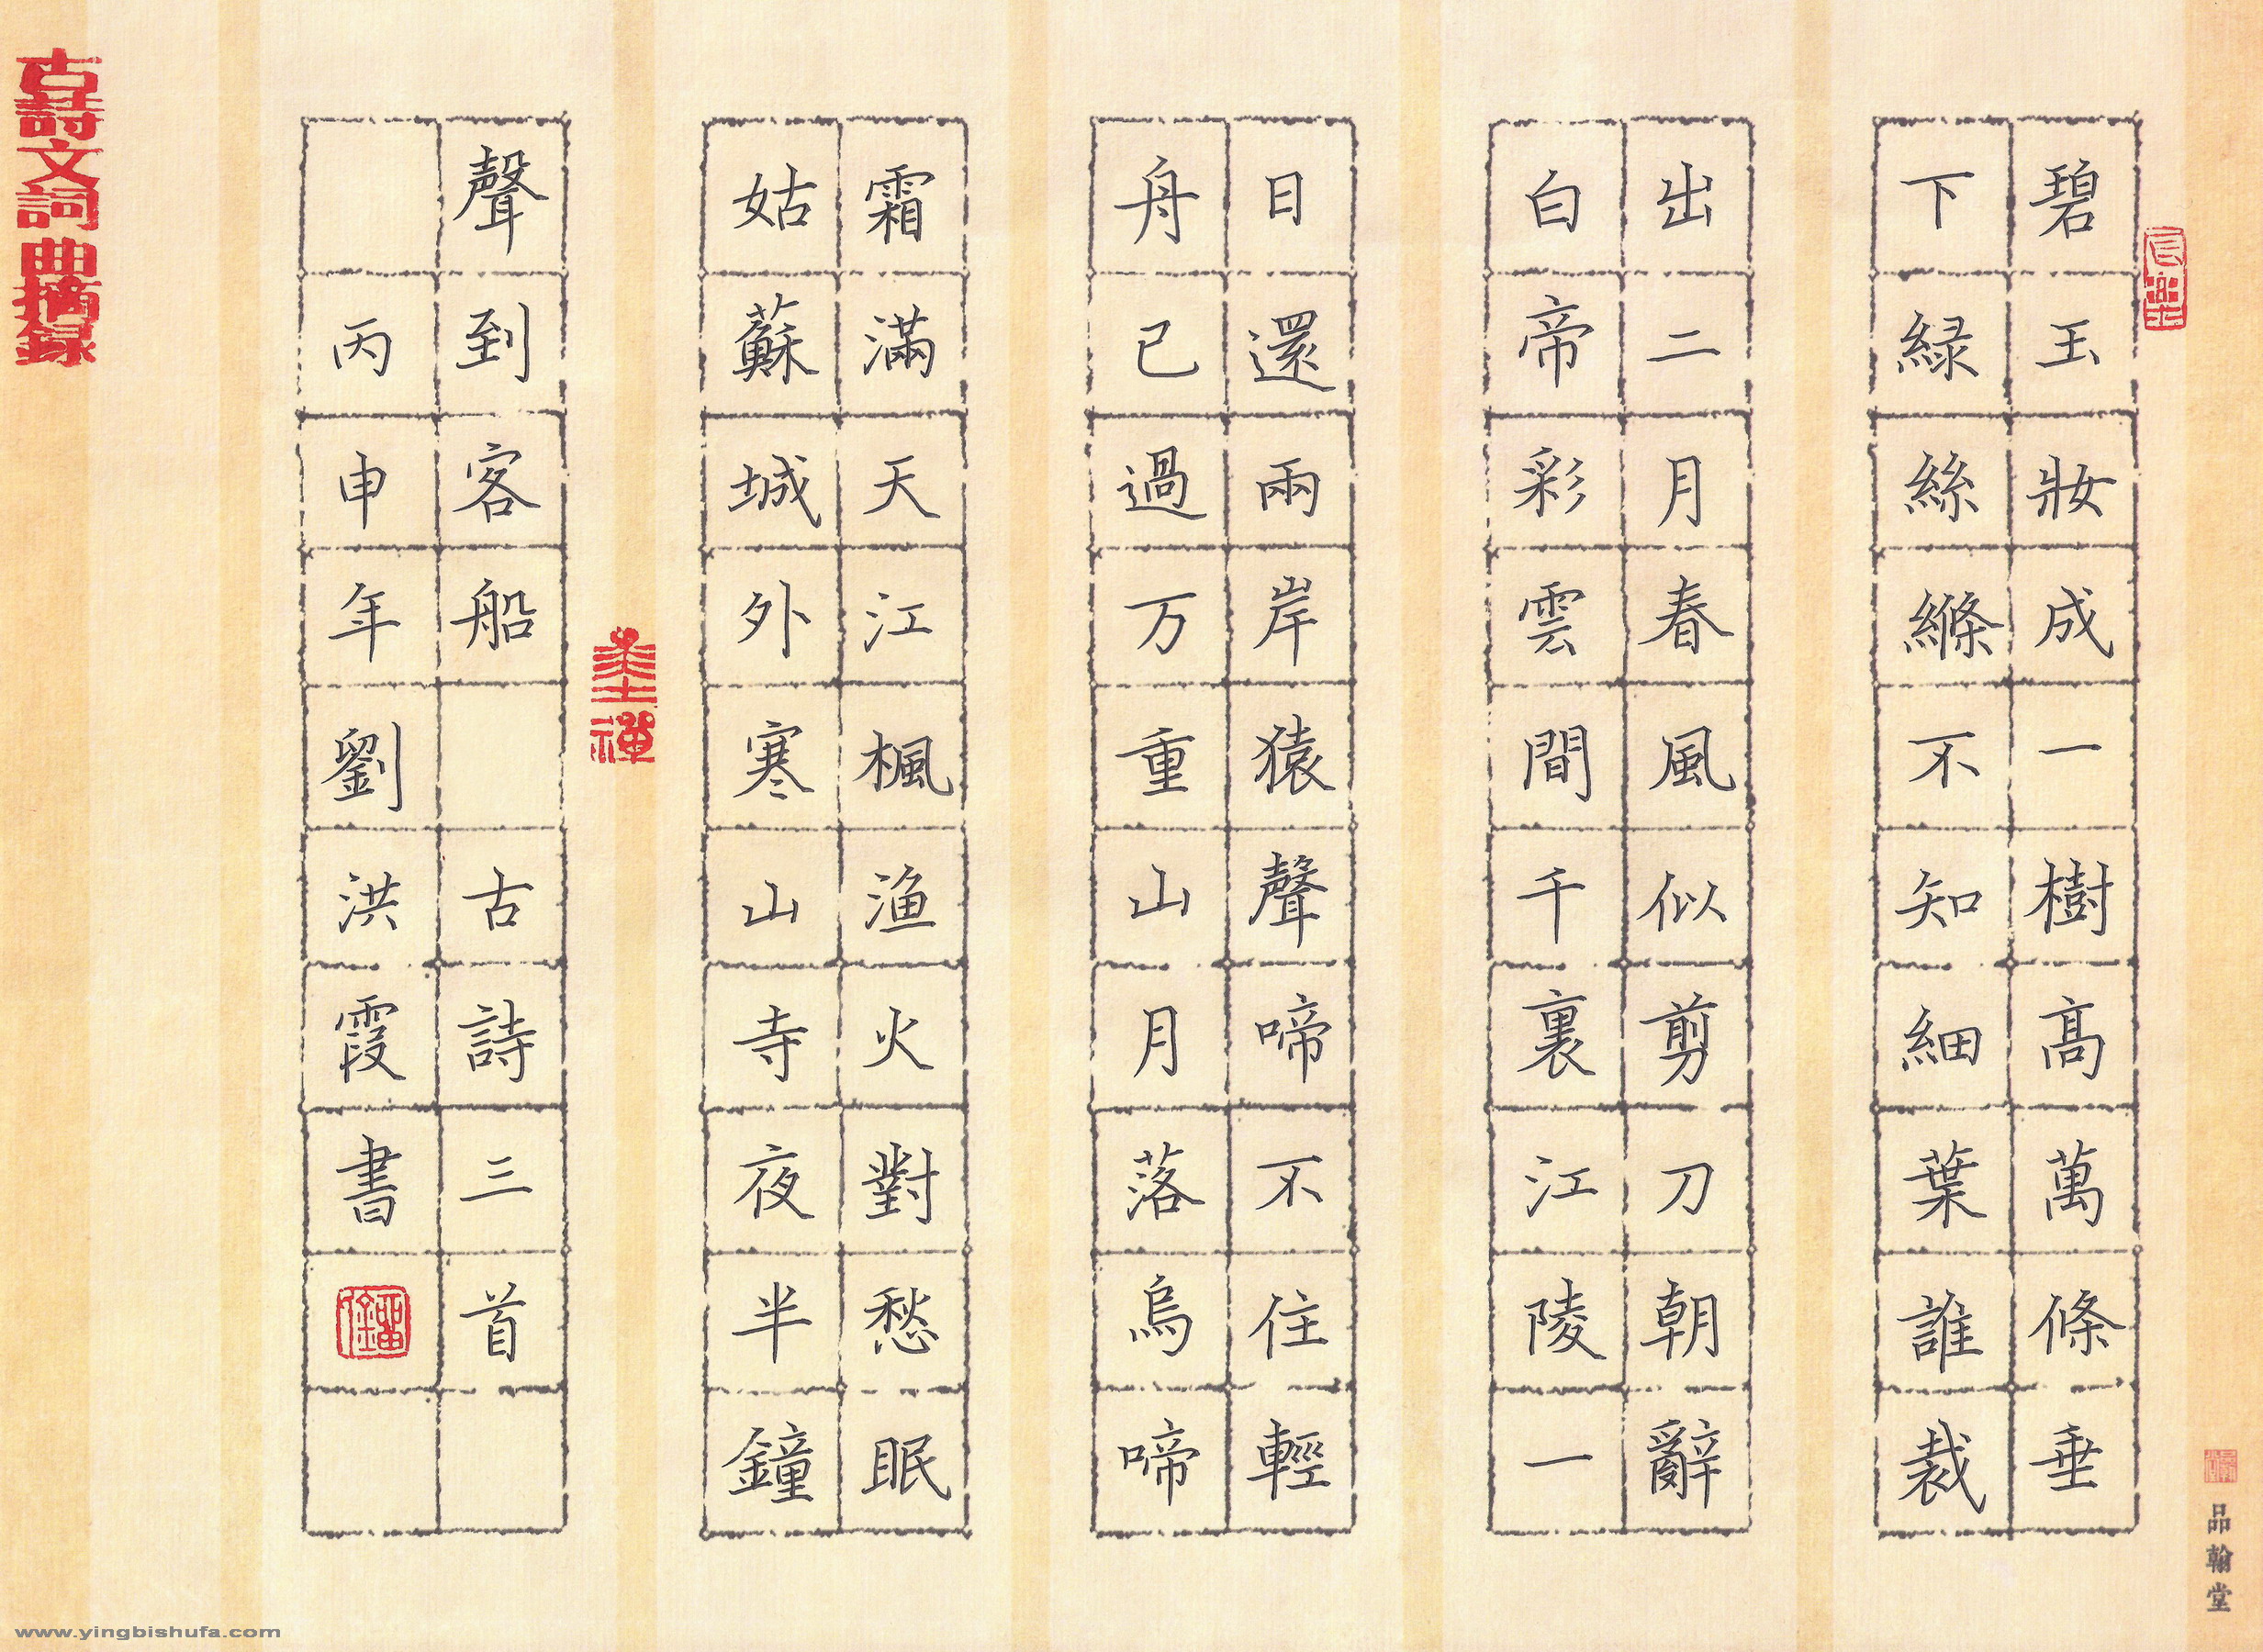 碧玉妝成一樹高萬條垂
下緑絲縧不知細葉誰裁
出二月春風似剪刀朝辭
白帝彩雲間千裏江陵一
日還兩岸猿聲啼不住輕
舟已過万重山月落烏啼
霜滿天江楓渔火對愁眠
姑蘇城外寒山寺夜半鐘
聲到客船 古詩三首
丙申年劉洪霞書
古詩文詞曲摘録
品翰堂
www.yingbishufa.com